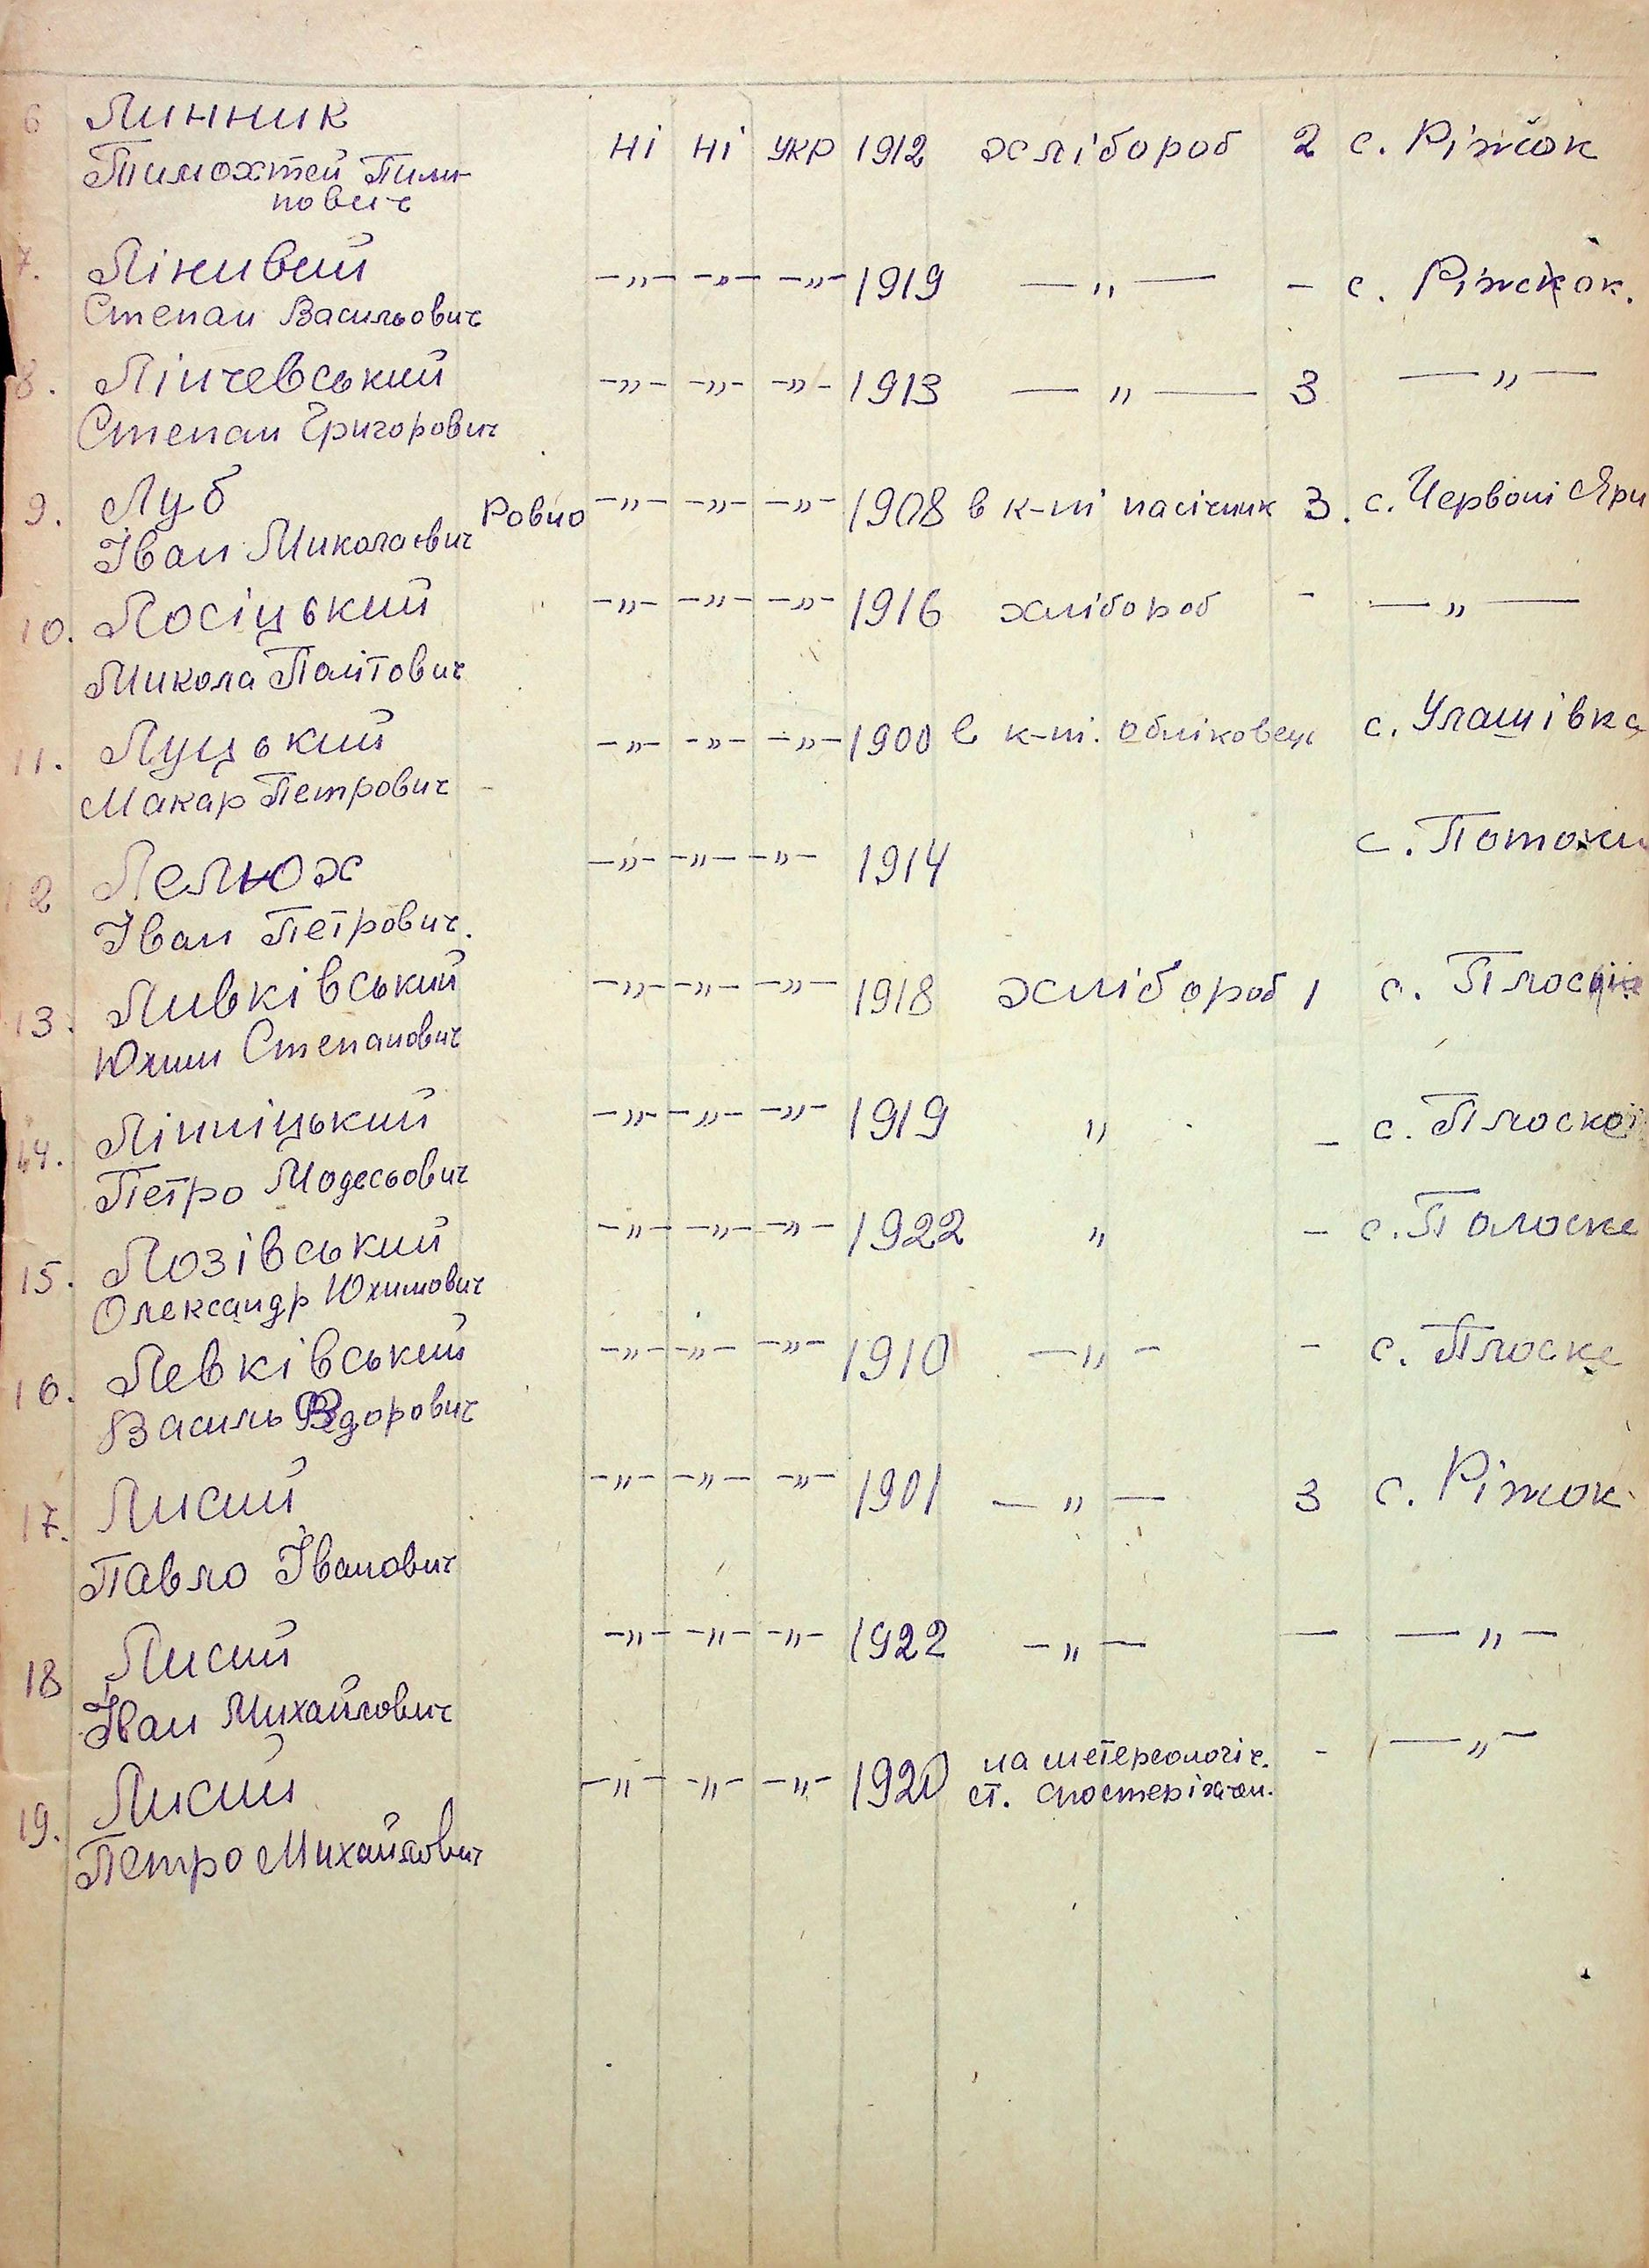 6 Линник
Тимохтей Пили-
пович
ні ні укр 1912 хлібороб 2 с. Ріжок
7. Лінивий
Степан Васильович
—„— —„— —„— 1919 —„— – с. Ріжок.
8. Лінчевський
Степан Григорович
—„— —„— —„— 1913 —„— 3 —„—
9. Луб
Іван Миколаєвич
Ровно —„— —„— —„— 1908 в к-пі пасічник 3. с. Червоні Яри
10. Лосіцький
Микола Политович
—„— —„— —„— 1916 хлібороб – —„—
11. Луцький
Макар Петрович
—„— —„— —„— 1900 в к-пі. обліковець с. Улашівка
12 Лелюх
Іван Петрович.
—„— —„— —„— 1914 с. Потоки
13. Ливківський
Юхим Степанович
—„— —„— —„— 1918 хлібороб 1 с. Плоске
14. Лінніцький
Петро Модесьович
—„— —„— —„— 1919 „ – с. Плоскої
15. Лозівський
Олександр Юхимович
—„— —„— —„— 1922 „ – с. Полоске
16. Левківський
Василь Федорович
—„— —„— —„— 1910 —„— – с. Плоске
17. Лисий
Павло Іванович
—„— —„— —„— 1901 —„— 3 с. Ріжок
18 Лисий
Іван Михайлович
—„— —„— —„— 1922 —„— — —„—
19. Лисий
Петро Михайлович
—„— —„— —„— 1920 на метереологіч. – —„—
ст. спостерігачем.